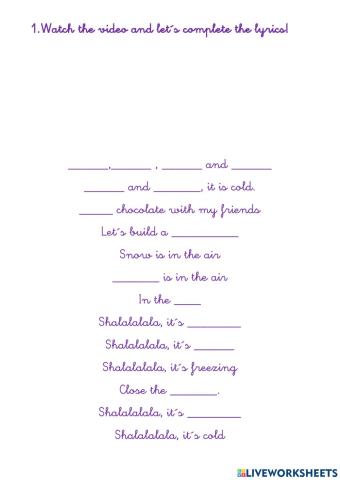 1.Watch the video and let´s complete the lyrics!
______,______ , ______ and ______
______ and _______, it is cold.
_____ chocolate with my friends
Let´s build a __________
Snow is in the air
_______ is in the air
In the ____
Shalalalala, it´s ________
Shalalalala, it´s ______
Shalalalala, it´s freezing
Close the _______.
Shalalalala, it´s ________
Shalalalala, it´s cold
LIVEWORKSHEETS